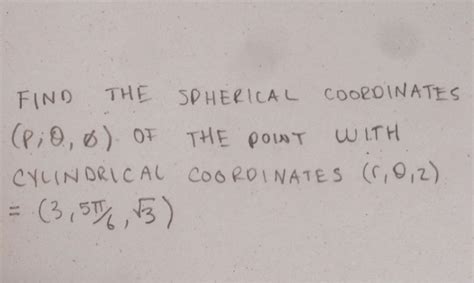 FIND THE SPHERICAL COORDINATES
(ρ, θ, ø) OF THE POINT WITH
CYLINDRICAL COORDINATES (r, θ, z)
= (3, 5π/6, √3)